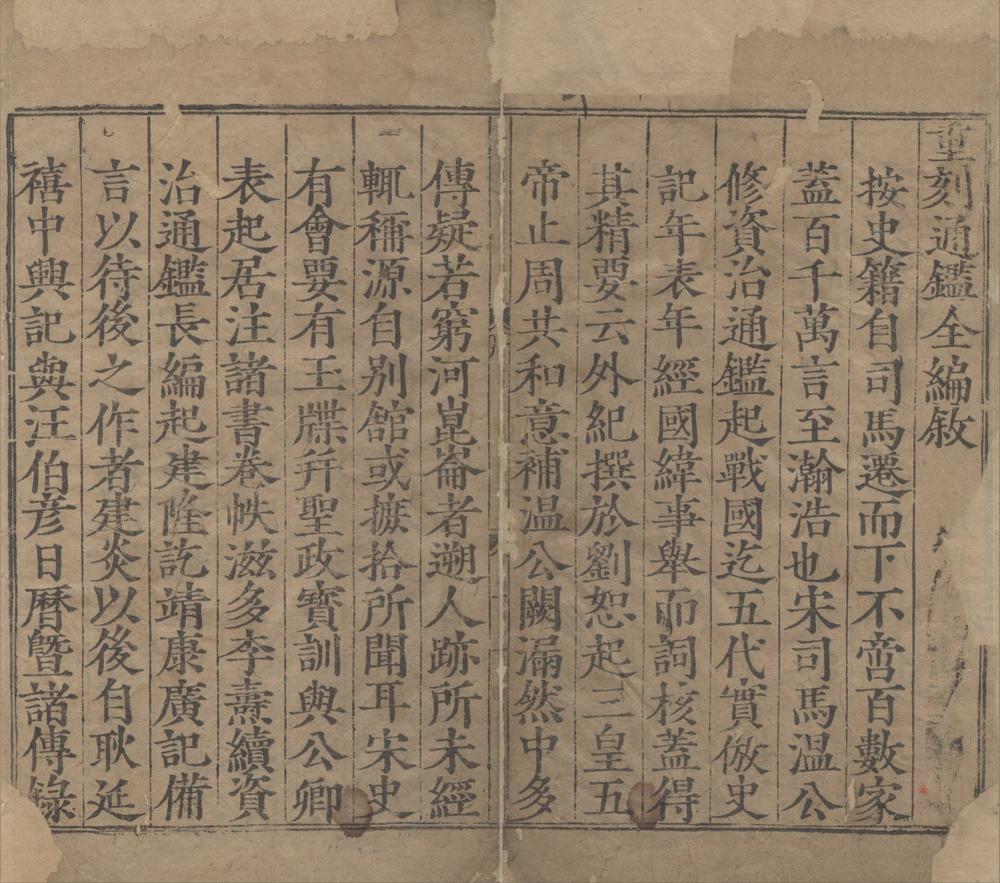 重刻通鑑全編敘
按史籍自司馬遷而下不啻百數家
蓋百千萬言至瀚浩也宋司馬温公
修資治通鑑起戰國迄五代實倣史
記年表年經國緯事舉而詞核蓋得
其精要云外紀撰於劉恕起三皇五
帝止周共和意補温公闕漏然中多
傳疑若窮河崑崙者遡人跡所未經
輒稱源自别館或摭拾所聞耳宋史
有會要有玉牒幷聖政寳訓與公卿
表起居注諸書卷帙滋多李燾續資
治通鑑長編起建隆訖靖康廣記備
言以待後之作者建炎以後自耿延
禧中興記與汪伯彦日曆曁諸傳錄